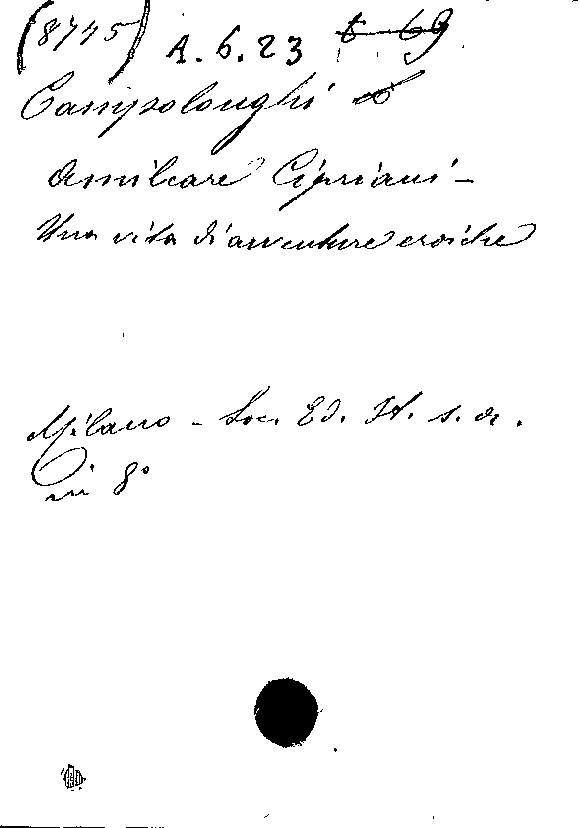 (8745) A.6.23 6 69
Campolonghi
Amilcare Cipriani -
Una vita di avventure eroiche
Milano - Soc. Ed. It. s.a.
in 8°